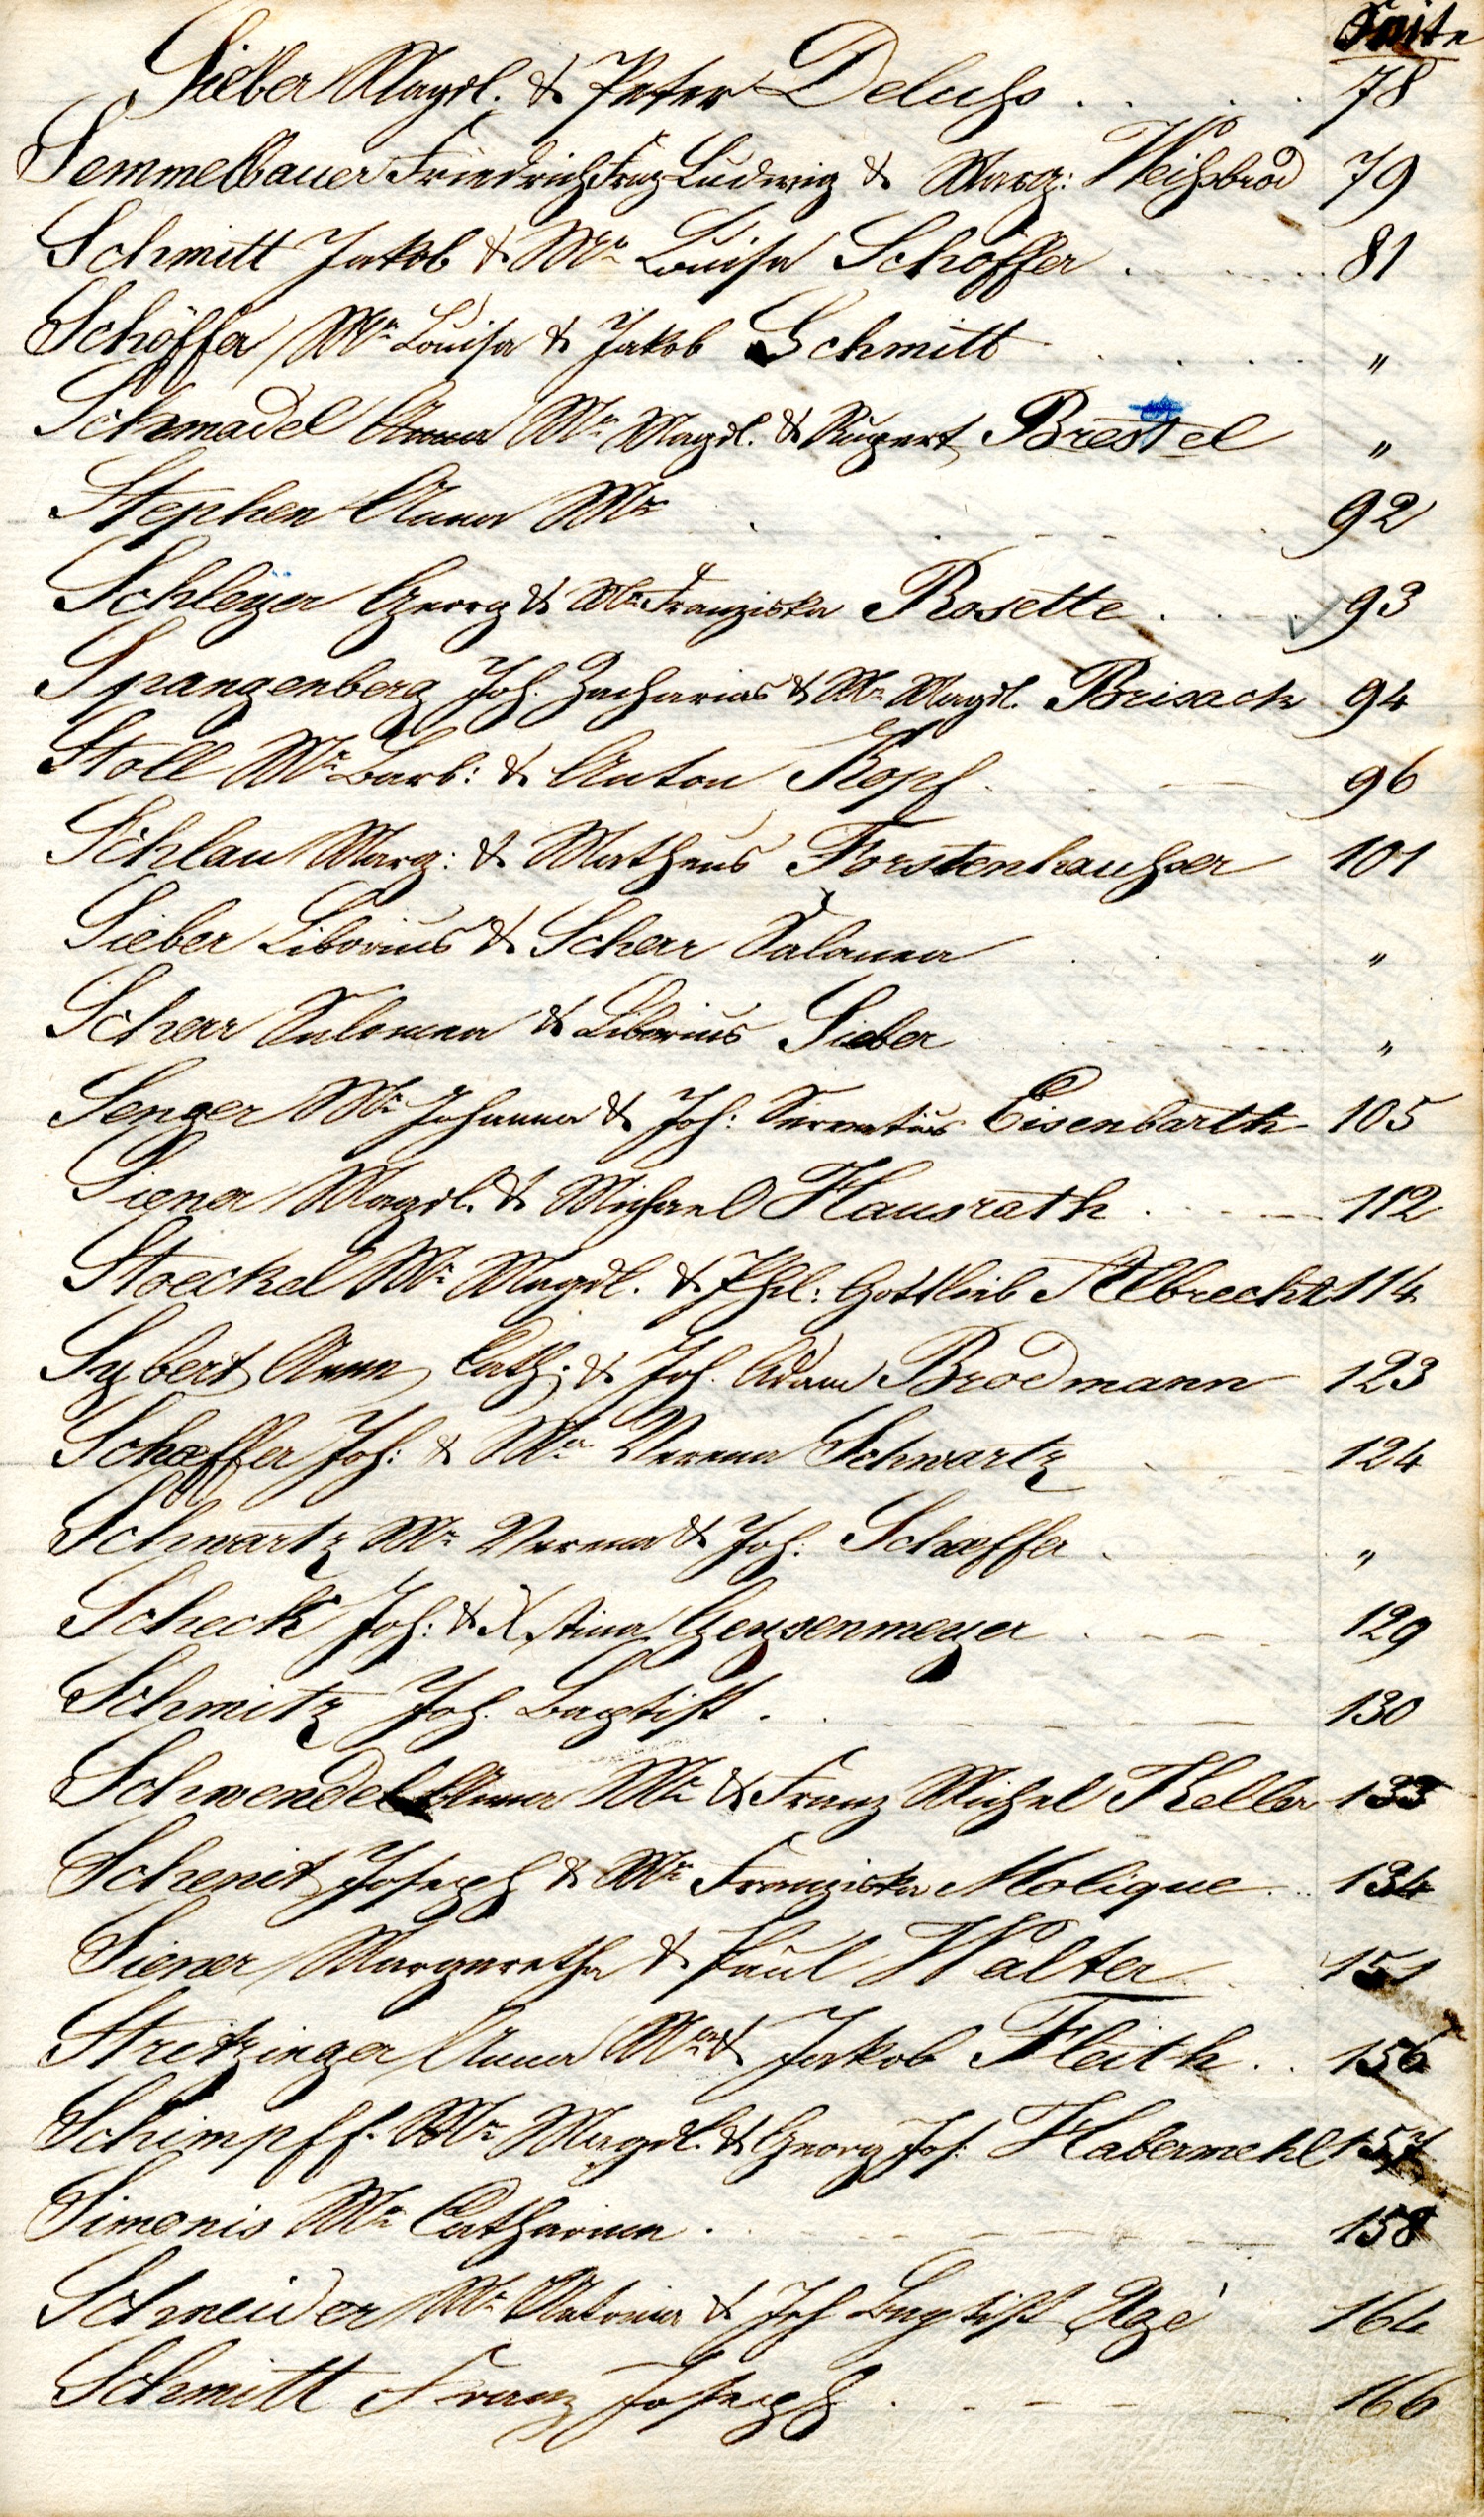 Seite
Sieber Magdl. & Peter Deluchs . . . . 78
Semmelbauer Friedrich Frz Ludwig & Marg: Weihsbrod 79
Schmitt Jakob & Ma Louisa Schöffer . . . 81
Schöffer Ma Louisa & Jakob Schmitt . . . . "
Schmadel Anna Ma Magdl. & Rupert Brestel "
Stephen Anna Ma . . . 92
Schleÿer Georg & Ma Franziska Rosette . . . 93
Spangenberg Joh. Zacharias & Ma Magdl. Brisack 94
Stoll Ma Barb: & Anton Kopf . . 96
Schlau Marg: & Matheus Forstenhauhser 101
Sieber Liborius & Scherr Salomea . . . "
Scherr Salomea & Liborius Sieber . . . "
Senger Ma Johanna & Joh: Servatius Eisenbarth 105
Siener Magdl. & Michael Hausrath . . . 112
Stoeckel Ma Magdl. & Phil: Gottlieb Albrecht 114
Sybert Anna Cath: & Joh. Adam Brodmann 123
Schæffer Joh: & Ma Verena Schwartz . . 124
Schwartz Ma Verena & Joh. Schæffer . . "
Scheck Joh: & Xstina Geysenmeyer . . . 129
Schmitz Joh. Baptist . . . 130
Schwendel Anna Ma & Franz Michel Keller 133
Schenit Joseph & Ma Franziska Molique . . 134
Siener Margaretha & Paul Walter . . 151
Stritzinger Anna Ma & Jakob Fleith . . 156
Schimpff. Ma Magdl. & Georg Jos: Habermehl 157
Simonis Ma Catharina . . . 158
Schneider Ma Antonia & Joh Baptist Agé 164
Schmitt Franz Joseph . . . 166